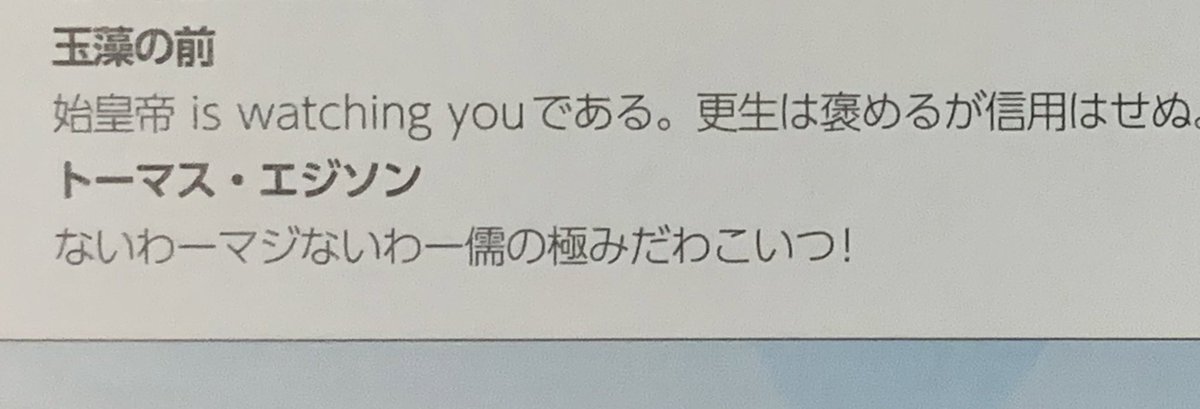 玉藻の前
始皇帝 is watching youである。更生は褒めるが信用はせぬ。
トーマス・エジソン
ないわーマジないわー儒の極みだわこいつ!